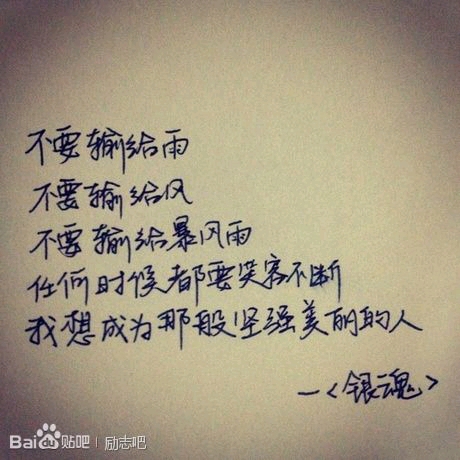 不要输给雨
不要输给风
不要输给暴风雨
任何时候都要笑容不断
我想成为那般坚强美丽的人
—<银魂>
Bai du 贴吧 | 励志吧